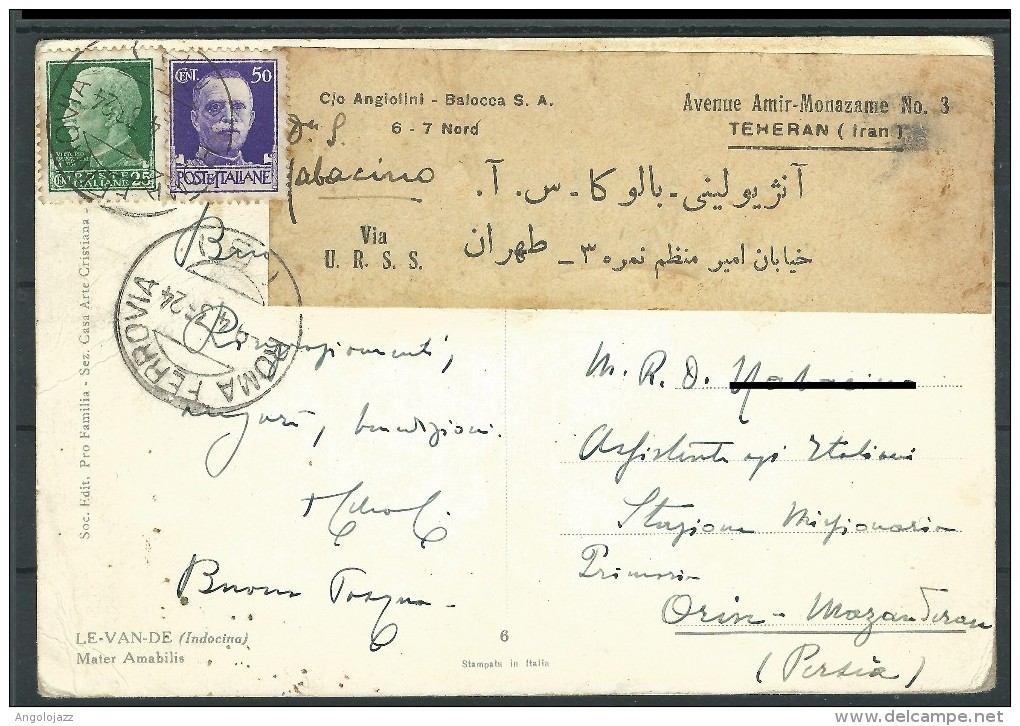 CENT. 50
POSTE ITALIANE
POSTE
ITALIANE
CENT 25
C/o Angiolini - Balocca S. A.
6 - 7 Nord
Via
U. R. S. S.
Avenue Amir-Monazame No. 3
TEHERAN ( Iran )
آنژیولینی - بالوکا - س. آ.
خیابان امیر منظم نمره ۳ - طهران
ROMA FERROVIA
Soc. Edit. Pro Familia - Sez. Casa Arte Cristiana -
Ringraziamenti,
auguri, benedizioni.
Buona Pasqua
M. R. D.
Assistente agli Italiani
Stazione Missionaria
Primaria
Orin - Mazanderan
(Persia)
LE-VAN-DE (Indocina)
Mater Amabilis
6
Stampata in Italia
Angolojazz
delcampe.net